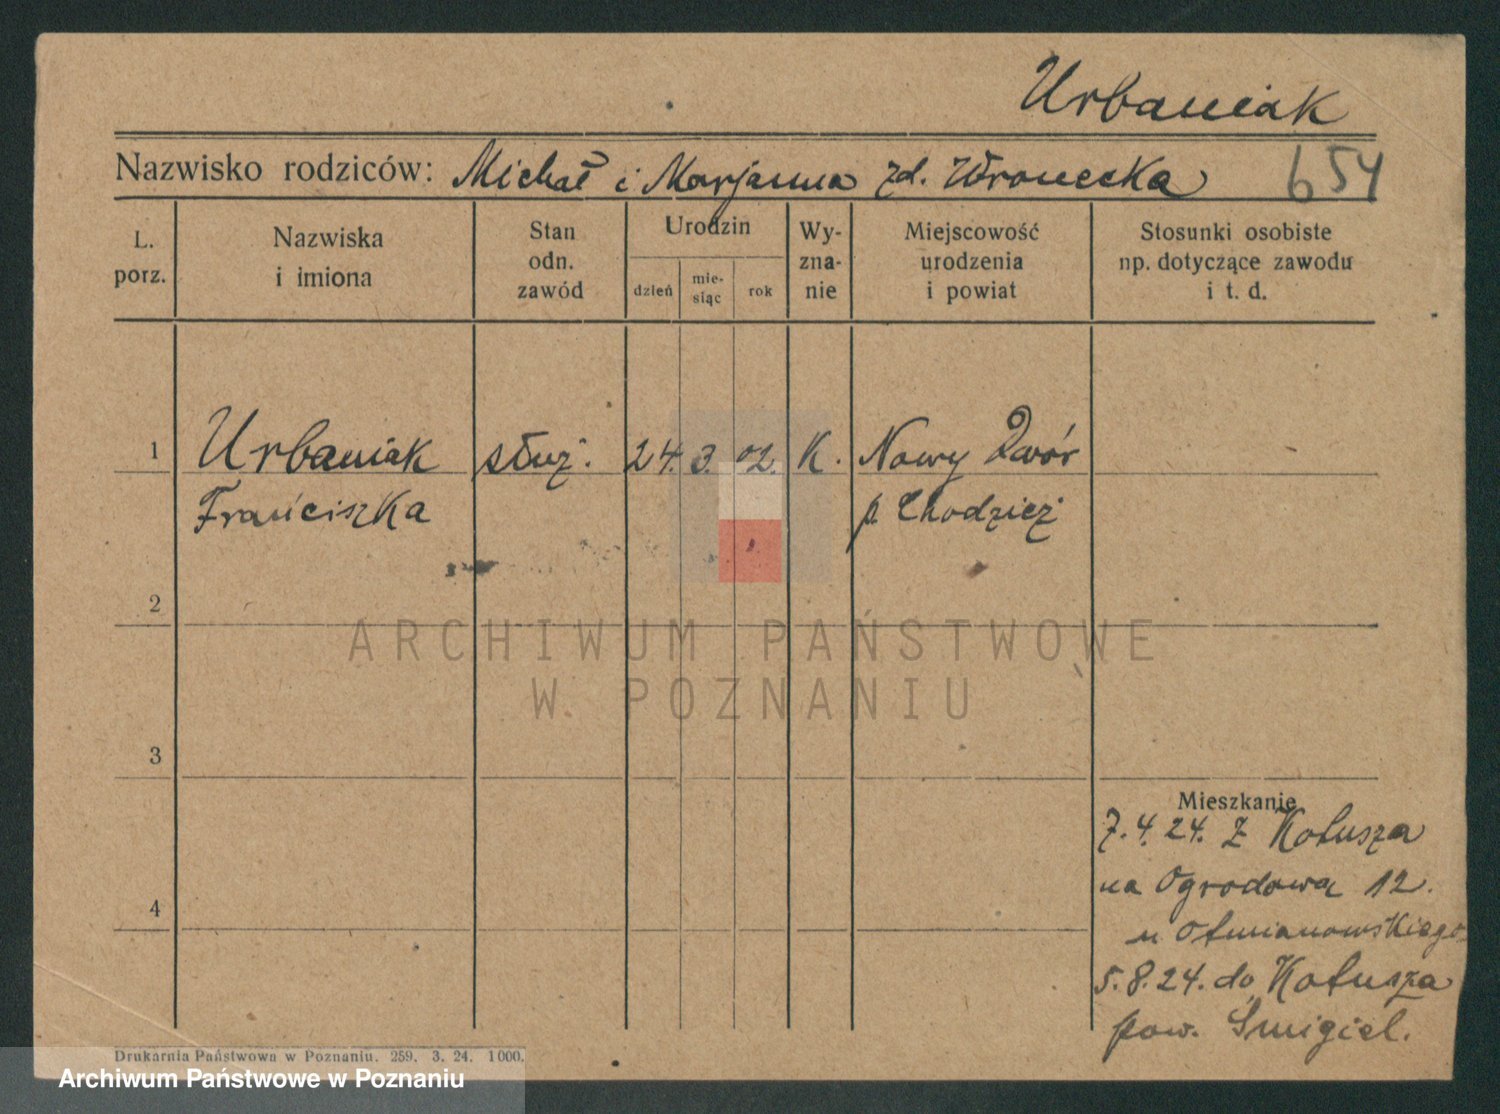 Urbaniak
Nazwisko rodziców: Michał i Marjanna zd. Wronecka 654
L. porz.
Nazwiska i imiona
Stan odn. zawód
Urodzin
dzień
mie-
siąc
rok
Wy-
zna-
nie
Miejscowość
urodzenia
i powiat
Stosunki osobiste
np. dotyczące zawodu
i t. d.
1 Urbaniak służ. 24. 3. 02. K. Nowy Dwór
Franciszka p. Chodzież
2
ARCHIWUM PAŃSTWOWE
W POZNANIU
3
Mieszkanie
7.4.24. z Kotusza
na Ogrodową 12.
4
u Otmianowskiego
5.8.24. do Kotusza
pow. Śmigiel.
Drukarnia Państwowa w Poznaniu. 259. 3. 24. 1000.
Archiwum Państwowe w Poznaniu